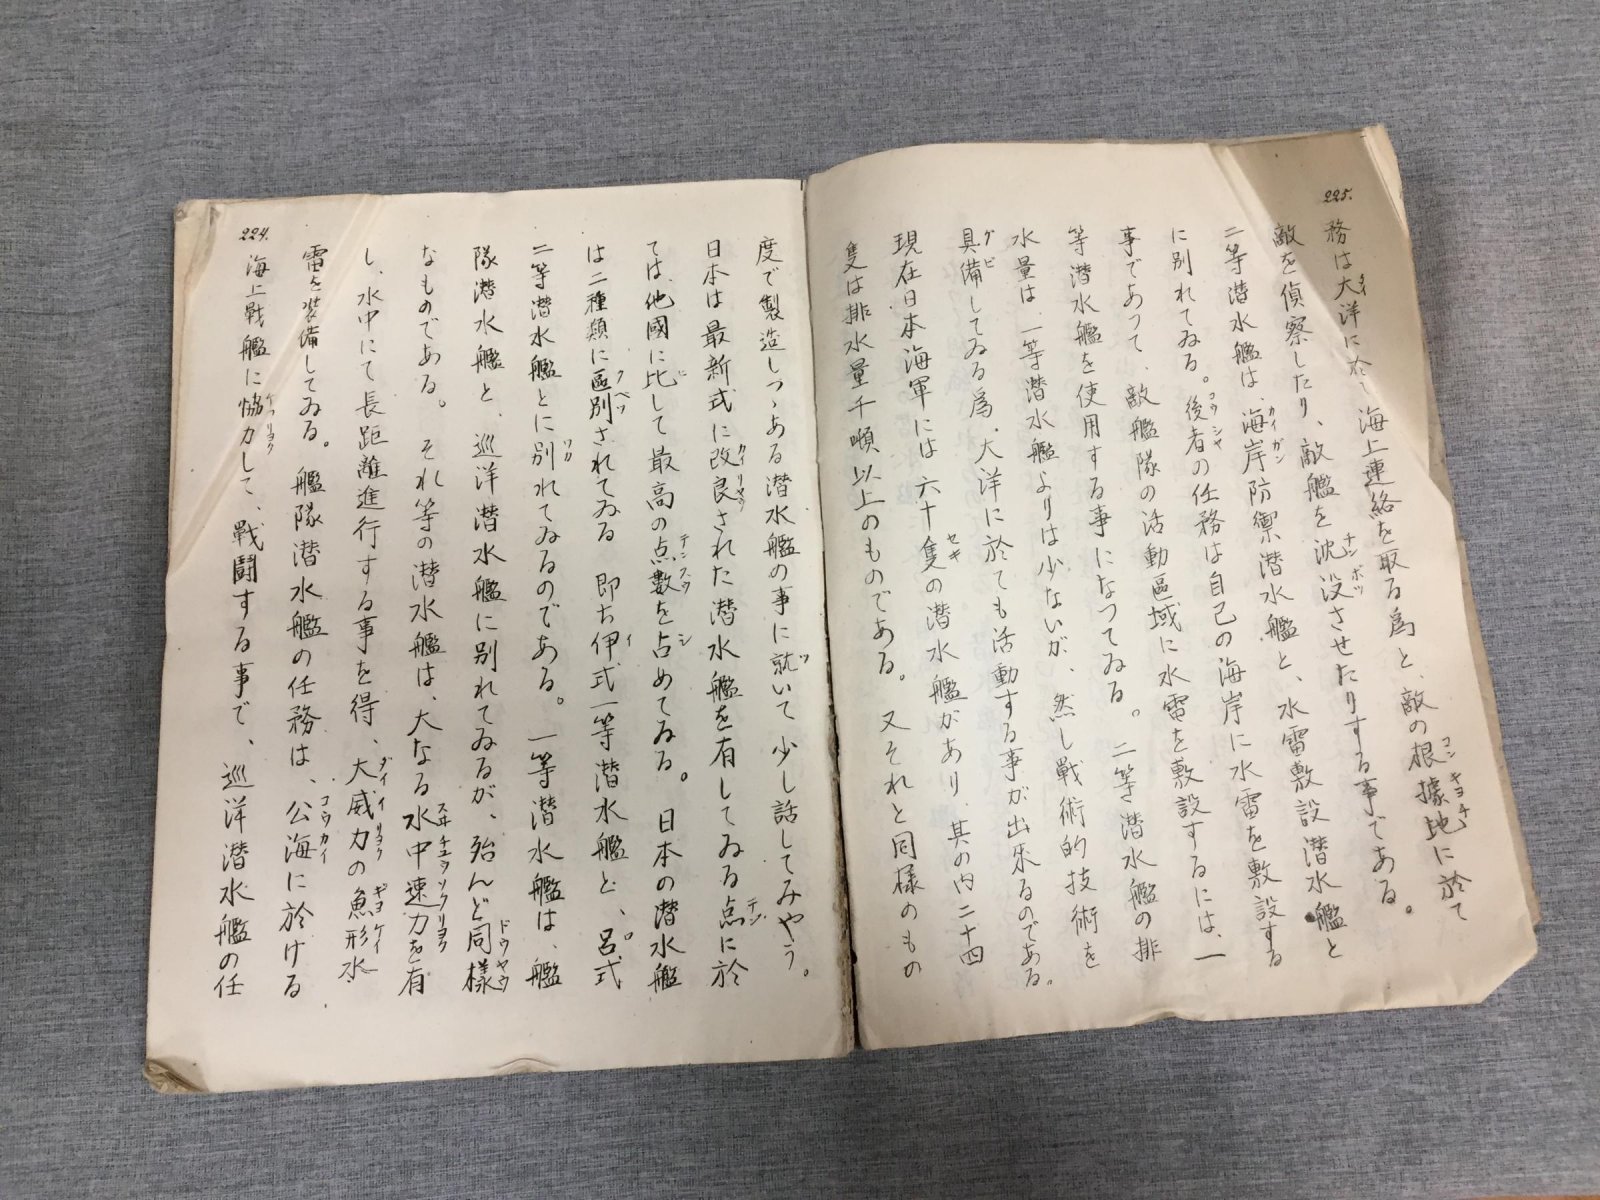 224.
度で製造しつゝある潜水艦の事に就いて少し話してみやう。
ツ
日本は最新式に改良された潜水艦を有してゐる点に於
カイリヤウ
テン
ては他國に比して最高の点數を占めてゐる。日本の潜水艦
ヒ
テンスウ
シ
は二種類に區別されてゐる 即ち伊式一等潜水艦と、呂式
クベツ
イ
二等潜水艦とに別れてゐるのである。一等潜水艦は、艦
ワカ
隊潜水艦と、巡洋潜水艦に別れてゐるが、殆んど同様
ドウヤウ
なものである。それ等の潜水艦は、大なる水中速力を有
スヰチュウソクリヨク
し、水中にて長距離進行する事を得、大威力の魚形水
ダイイリヨク
ギヨケイ
雷を装備してゐる。艦隊潜水艦の任務は、公海に於ける
コウカイ
海上戰艦に恊力して、戰闘する事で、巡洋潜水艦の任
ケフリヨク
225.
務は大洋に於て海上連絡を取る為と、敵の根據地に於て
タイ
コンキヨチ
敵を偵察したり、敵艦を沈没させたりする事である。
チンボツ
二等潜水艦は、海岸防禦潜水艦と、水雷敷設潜水艦と
カイガン
に別れてゐる。後者の任務は自己の海岸に水雷を敷設する
コウシヤ
事であつて、敵艦隊の活動區域に水雷を敷設するには、一
等潜水艦を使用する事になつてゐる。二等潜水艦の排
水量は、一等潜水艦よりは少ないが、然し戰術的技術を
具備してゐる為、大洋に於ても活動する事が出来るのである。
グビ
現在日本海軍には六十隻の潜水艦があり、其の内二十四
セキ
隻は排水量千噸以上のものである。又それと同様のもの